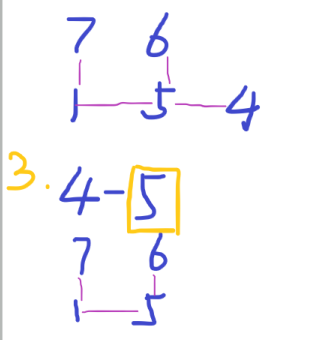 7 6
1 5 4
3. 4-5
7 6
1 5